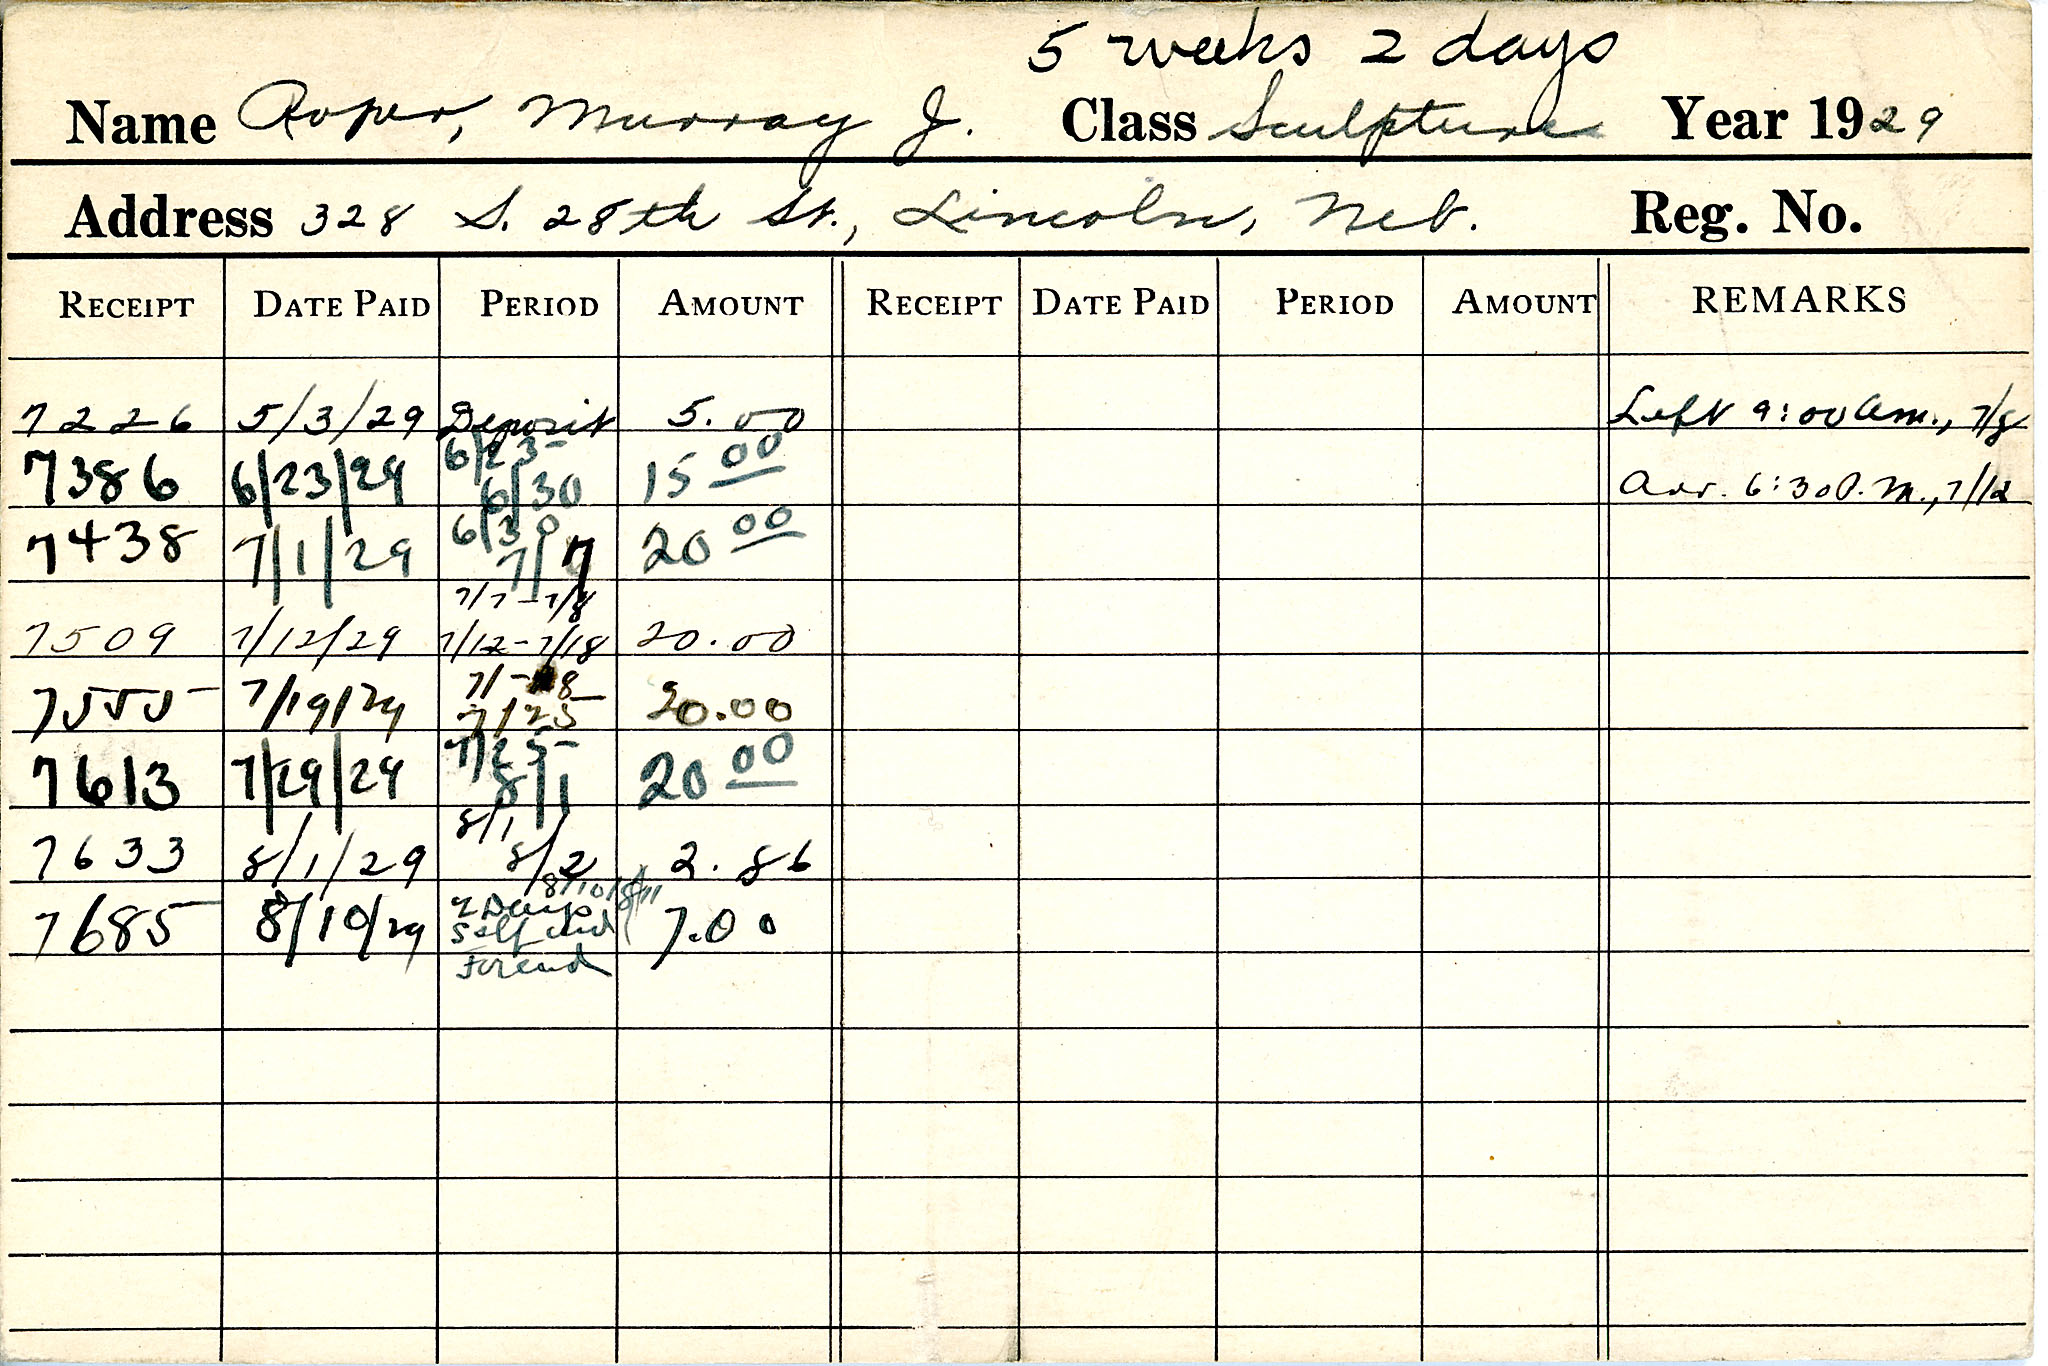 5 weeks 2 days
Name Roper, Murray J. Class Sculpture Year 1929
Address 328 S. 28th St., Lincoln, Neb. Reg. No.
RECEIPT DATE PAID PERIOD AMOUNT RECEIPT DATE PAID PERIOD AMOUNT REMARKS
7226 5/3/29 Deposit 5.00 Left 9:00 Am., 7/8
6/23-
7386 6/23/29 6/30 15 00 Arr. 6:30 P.M., 7/12
6/30
7438 7/1/29 7/7 20 00
7/7-7/8
7509 7/12/29 7/12-7/18 20.00
7/-18
7555 7/19/29 7/25 20.00
7/25-
7613 7/29/29 8/1 20 00
8/1
7633 8/1/29 8/2 2.86
8/10/8/11
2 Days
7685 8/10/29 Self and 7.00
Friend